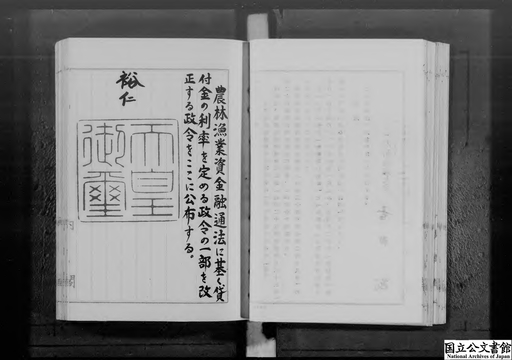 農林漁業資金融通法に基く貸
付金の利率を定める政令の一部を改
正する政令をここに公布する。
裕仁
天皇
御璽
国立公文書館
National Archives of Japan